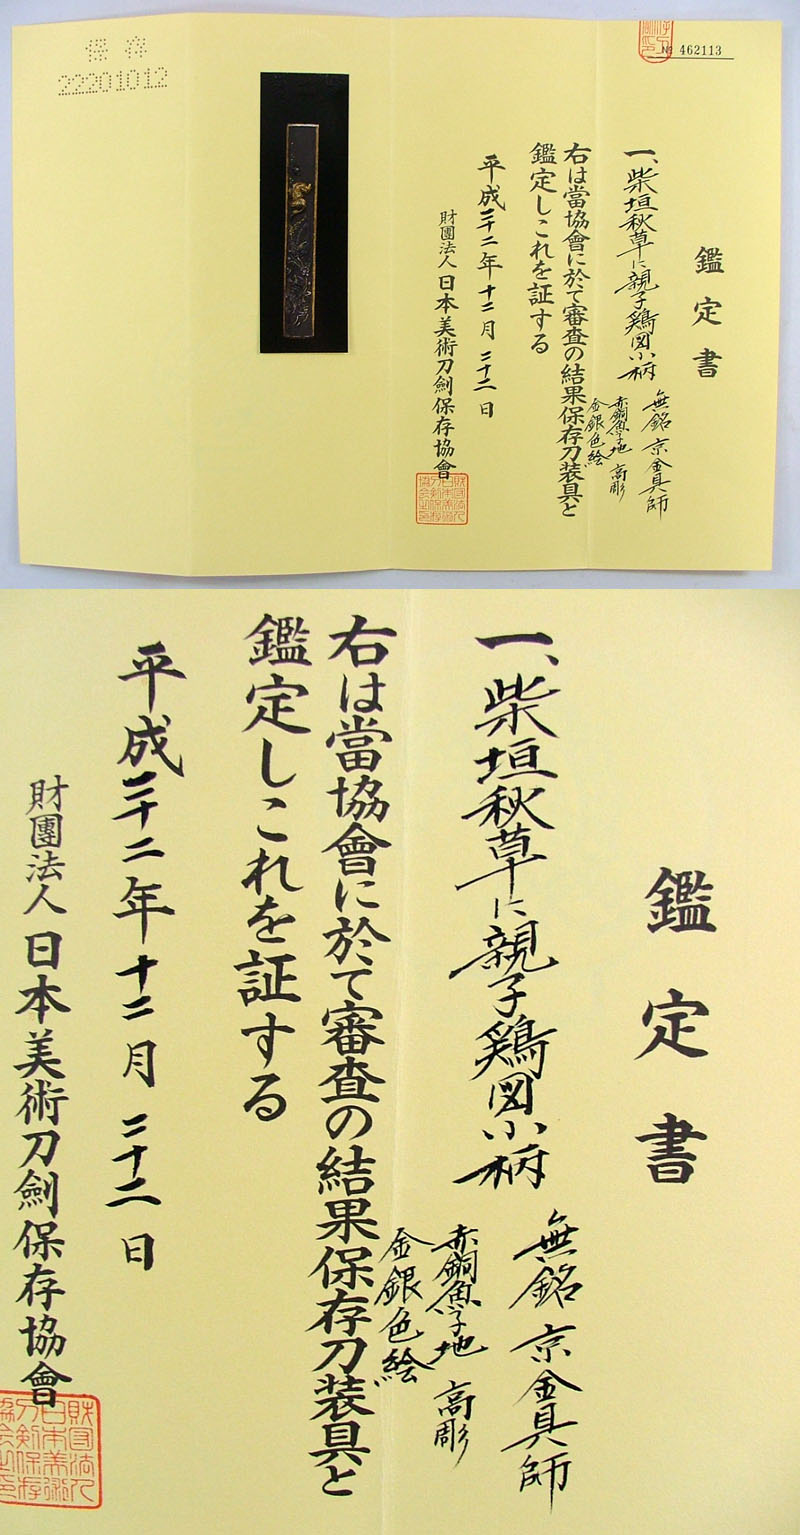 保存
22201012
№ 462113
鑑定書
一、柴垣秋草に親子鶏図小柄
無銘 京金具師
赤銅魚子地 高彫
金銀色絵
右は當協會に於て審査の結果保存刀装具と
鑑定しこれを証する
平成二十二年十二月二十二日
財團法人日本美術刀劍保存協會
鑑定書
一、柴垣秋草に親子鶏図小柄
無銘 京金具師
赤銅魚子地 高彫
金銀色絵
右は當協會に於て審査の結果保存刀装具と
鑑定しこれを証する
平成二十二年十二月二十二日
財團法人日本美術刀劍保存協會